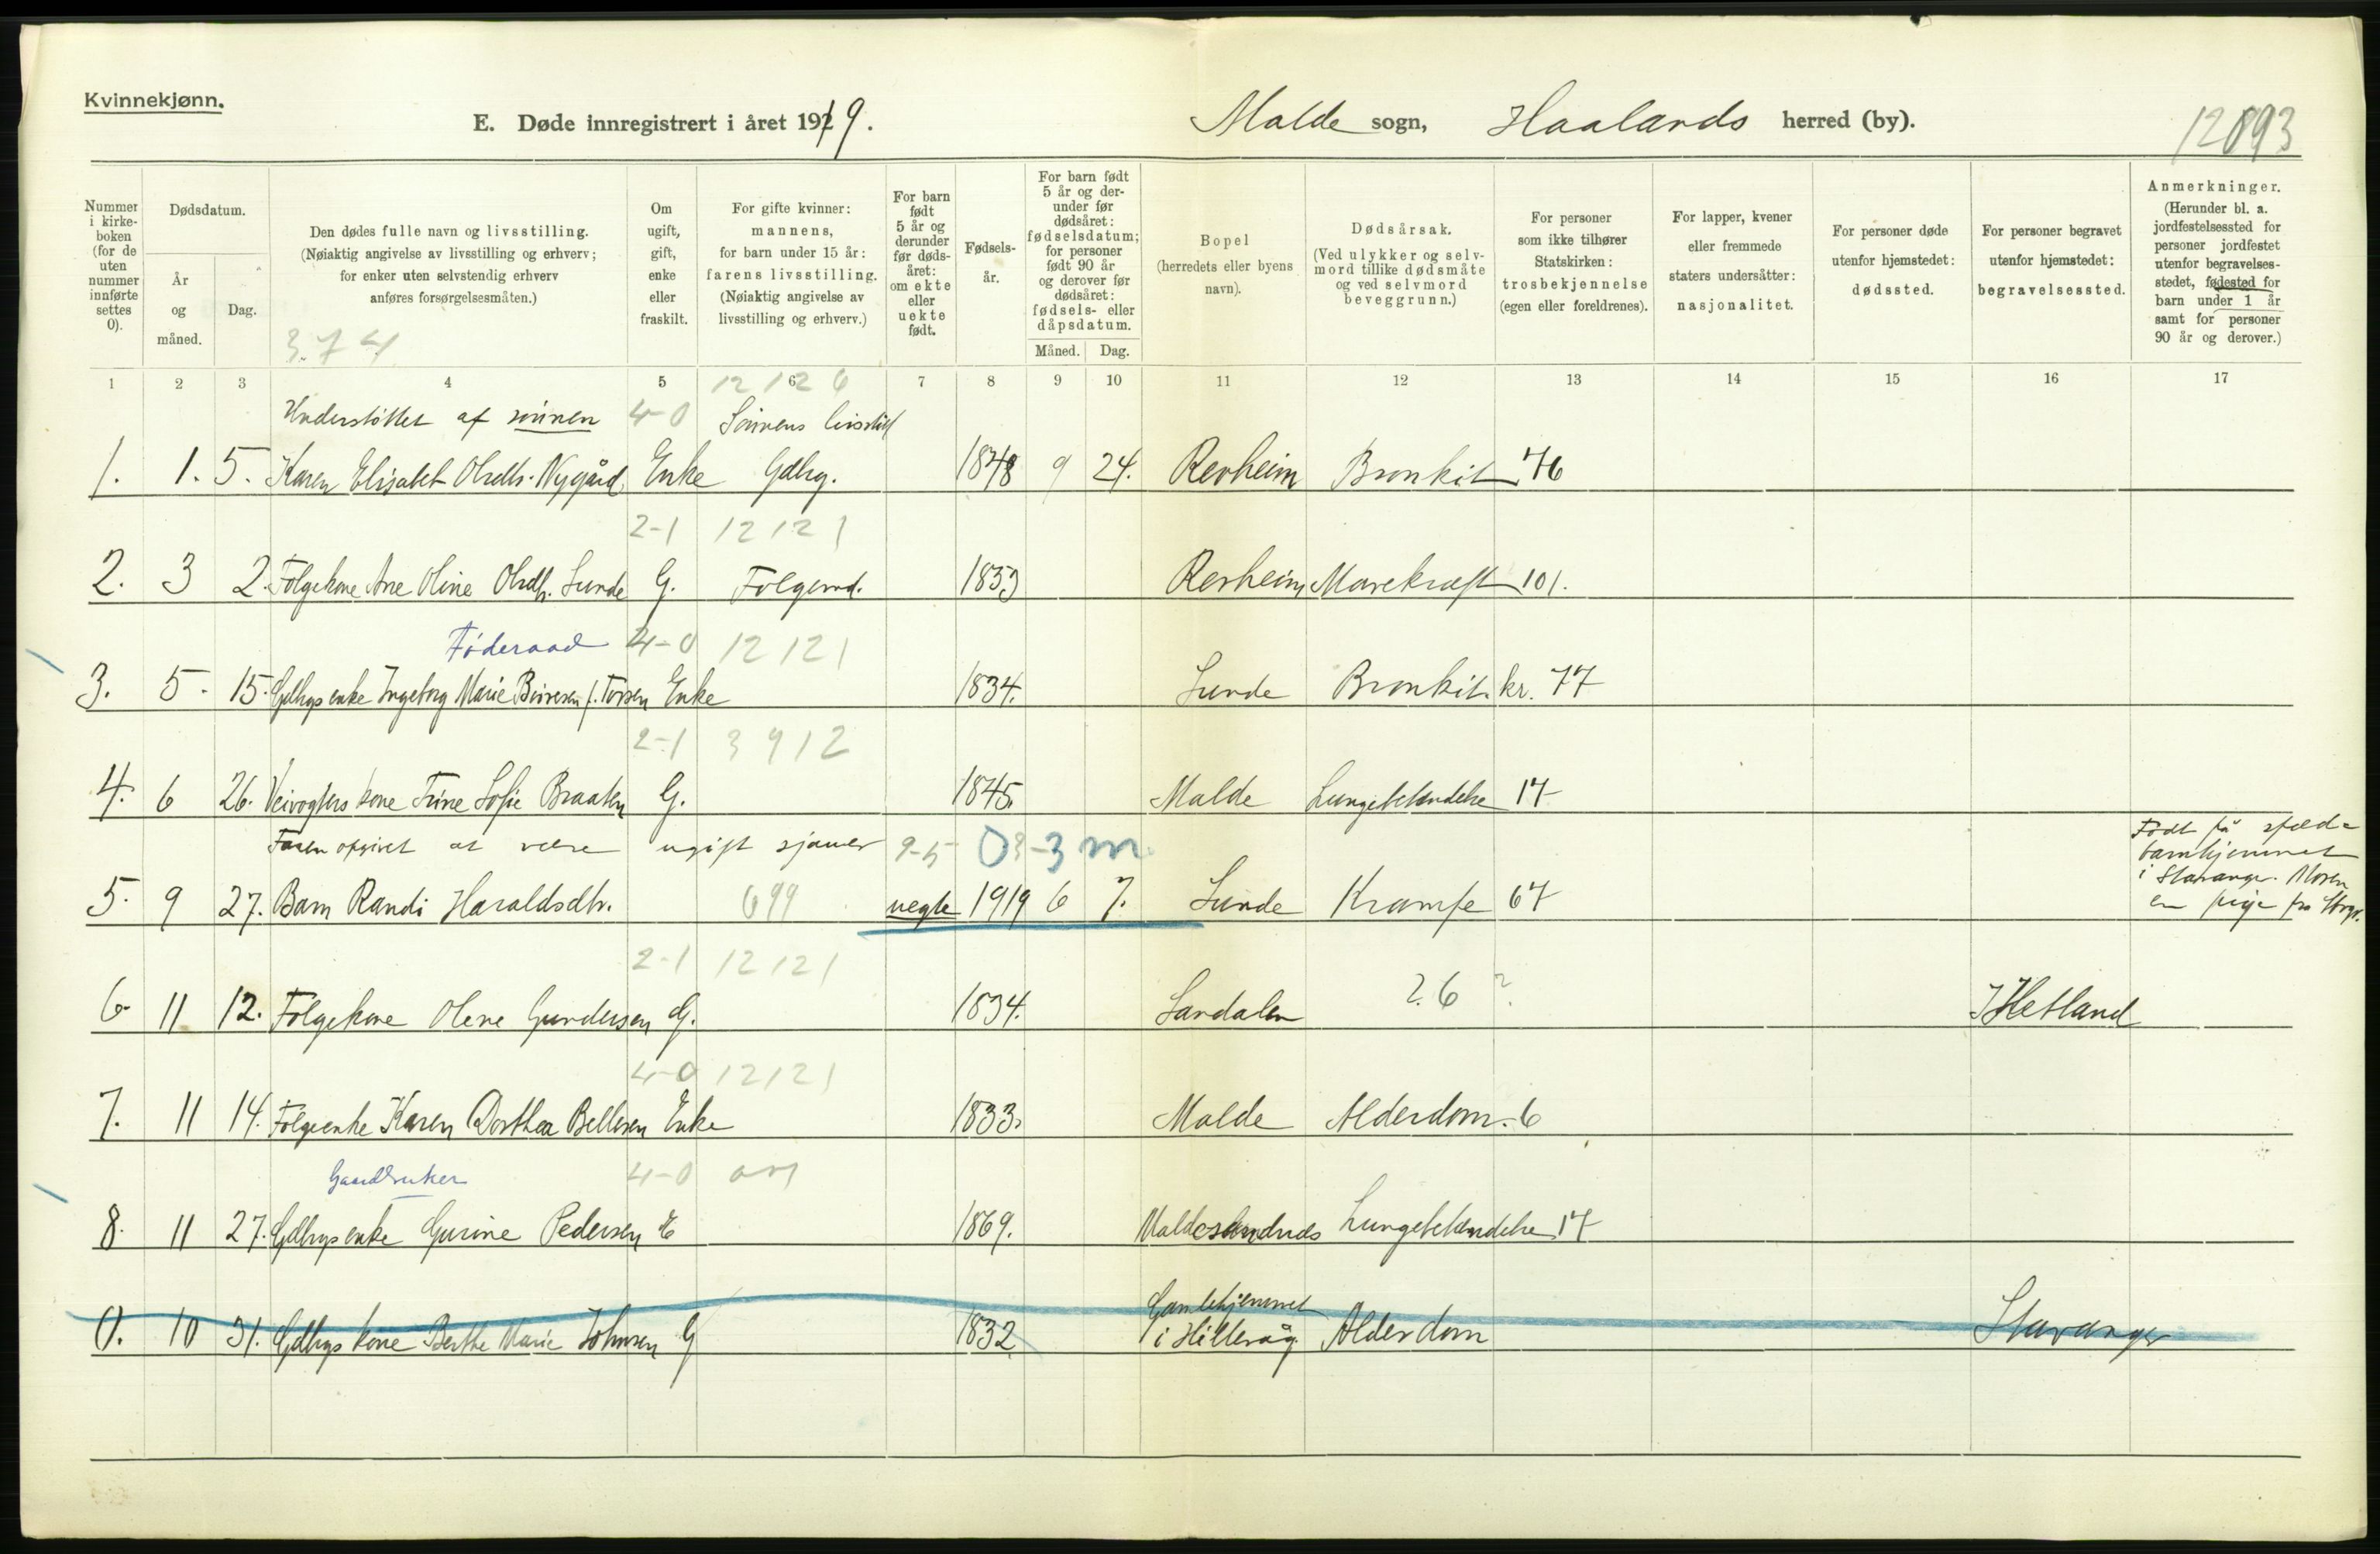 Kvinnekjønn.
E. Døde innregistrert i året 1919.
Malde sogn, Haalands herred (by).
12893
Nummer i kirkeboken (for de uten nummer innførte settes 0).
Dødsdatum.
År og måned.
Dag.
Den dødes fulle navn og livsstilling.
(Nøiaktig angivelse av livsstilling og erhverv; for enker uten selvstendig erhverv anføres forsørgelsesmåten.)
374
Om ugift, gift, enke eller fraskilt.
For gifte kvinner: mannens, for barn under 15 år: farens livsstilling.
(Nøiaktig angivelse av livsstilling og erhverv.)
For barn født 5 år og derunder før dødsåret: om ekte eller uekte født.
Fødselsår.
For barn født 5 år og derunder før dødsåret: fødselsdatum; for personer født 90 år og derover før dødsåret: fødsels- eller dåpsdatum.
Måned. Dag.
Bopel (herredets eller byens navn).
Dødsårsak.
(Ved ulykker og selvmord tillike dødsmåte og ved selvmord beveggrunn.)
For personer som ikke tilhører Statskirken: trosbekjennelse (egen eller foreldrenes).
For lapper, kvener eller fremmede staters undersåtter: nasjonalitet.
For personer døde utenfor hjemstedet: dødssted.
For personer begravet utenfor hjemstedet: begravelsessted.
Anmerkninger.
(Herunder bl. a. jordfestelsessted for personer jordfestet utenfor begravelsesstedet, fødested for barn under 1 år samt for personer 90 år og derover.)
1 2 3 4 5 6 7 8 9 10 11 12 13 14 15 16 17
12 12 6
Understøttet af sønnen 4-0 Sønnens livsstil
1. 1. 5. Karen Elisabet Olsdtr. Nygård Enke Gdbrg. 1848 9 24. Revheim Bronkit 76
2-1 12 12 1
2. 3 2. Folgekone Ane Oline Olsdtr. Lunde G. Folgemd. 1833 Revheim Marekraft 101.
Føderaad 4-0 12 12 1
3. 5. 15. Gdbrgs enke Ingeborg Marie f. Enke 1834. Lunde Bronkit kr. 77
2-1 3 9 12
4. 6 26. Veivogters kone Trine Sofie Braaten G. 1845. Malde Lungebetændelse 17
Faren opgivet at være ugift sjauer 9-5 03-3 m
Født på spædebarnhjemmet i Stavanger. Moren en pige fra
5. 9 27. Barn Randi Haraldsdtr. 699 uegte 1919 6 7. Lunde Krampe 67
2-1 12 12 1
6. 11 12. Folgekone Olene Gundersen G. 1834. Sandalen ? 6 ? Hetland
4-0 12 12 1
7. 11 14. Folgeenke Karen Dorthea Bellesen Enke 1833. Malde Alderdom. 6
Gaardbruker 4-0
8. 11 27. Gdbrgs enke Gurine Pedersen E 1869. Lungebetændelse 17
0. 10 31. Gdbrgs kone Berthe Marie Johnsen G 1832. Gamlehjemmet i Hillevåg. Alderdom Stavanger